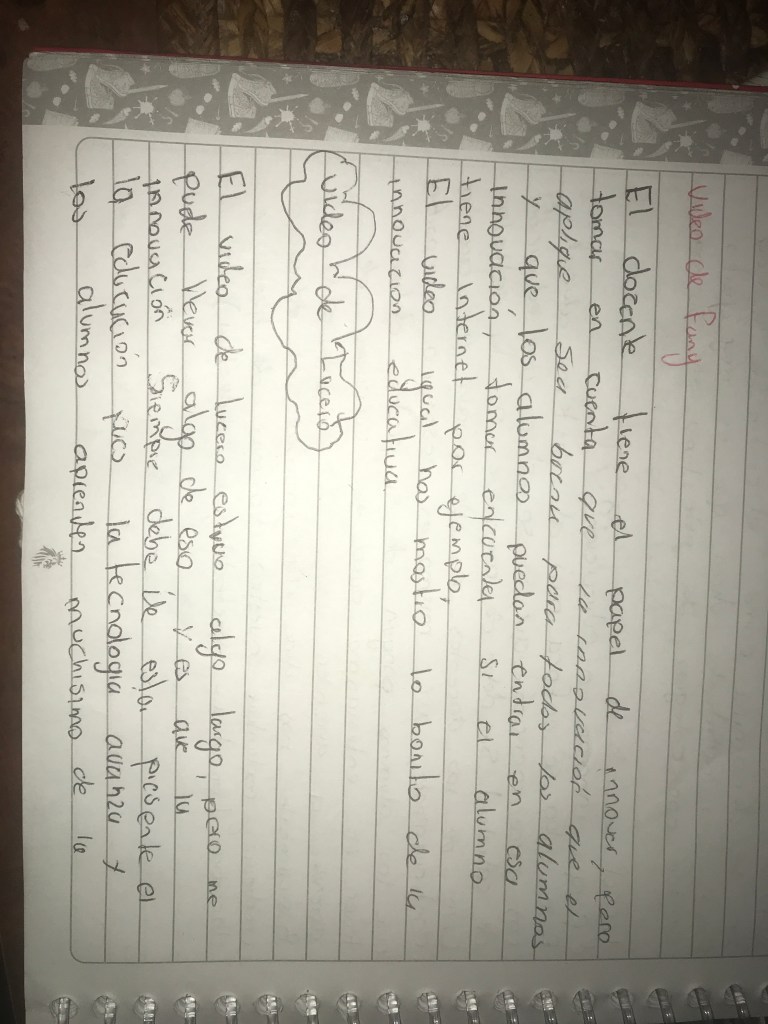 Video de Fany
El docente tiene el papel de innovar, pero
tomar en cuenta que la innovación que el
aplique sea bocan para todos los alumnos
y que los alumnos puedan entrar en esa
innovación, tomar encuenta si el alumno
tiene internet por ejemplo,
El video igual nos mostro lo bonito de la
innovacion educativa.
Video de Lucero
El video de Lucero estuvo algo largo, pero me
pude llevar algo de eso y es que la
innovación siempre debe de estar presente el
la educación pues la tecnologia avanza y
los alumnos aprenden muchisimo de la